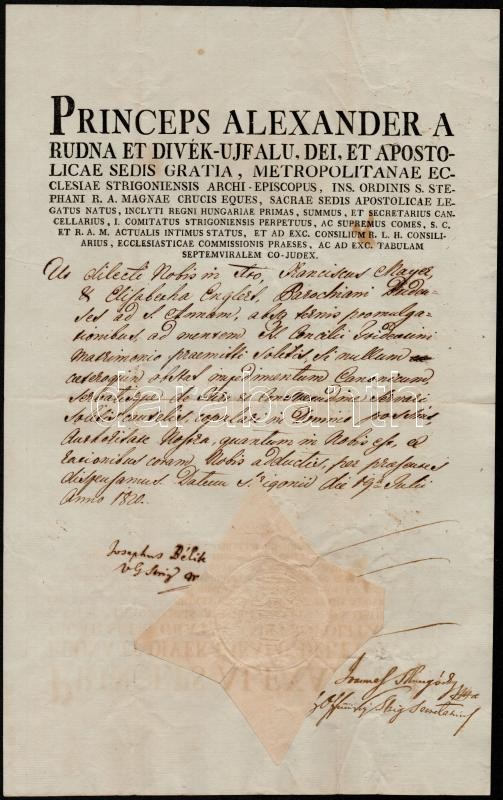 PRINCEPS ALEXANDER A
RUDNA ET DIVÉK-UJFALU, DEI, ET APOSTO-
LICAE SEDIS GRATIA, METROPOLITANAE EC-
CLESIAE STRIGONIENSIS ARCHI-EPISCOPUS, INS. ORDINIS S. STE-
PHANI R. A. MAGNAE CRUCIS EQUES, SACRAE SEDIS APOSTOLICAE LE-
GATUS NATUS, INCLYTI REGNI HUNGARIAE PRIMAS, SUMMUS, ET SECRETARIUS CAN-
CELLARIUS, I. COMITATUS STRIGONIENSIS PERPETUUS, AC SUPREMUS COMES, S. C.
ET R. A. M. ACTUALIS INTIMUS STATUS, ET AD EXC. CONSILIUM R. L. H. CONSILI-
ARIUS, ECCLESIASTICAE COMMISSIONIS PRAESES, AC AD EXC. TABULAM
SEPTEMVIRALEM CO-JUDEX.
Ut dilecti Nobis in Xto, Franciscus Mayer
& Elisabetha Englert, Parochiani Buden-
ses ad S. Annam, absq ternis promulga-
tionibus, ad mentem S. Concilii Tridentini
matrimonio praemitti solitis, si nullum
caeteroquin obstet impedimentum Canonicum,
servatisque de Jure et Consuetudine servari
solitis cautelis, copulari in Domino possint,
Authoritate Nostra, quantum in Nobis est, ex
rationibus coram Nobis adductis, per praesentes
dispensamus. Datum Strigonii die 19a Julii
Anno 1820.
Josephus Bélik
V G Strig
Secretarius
darabanth